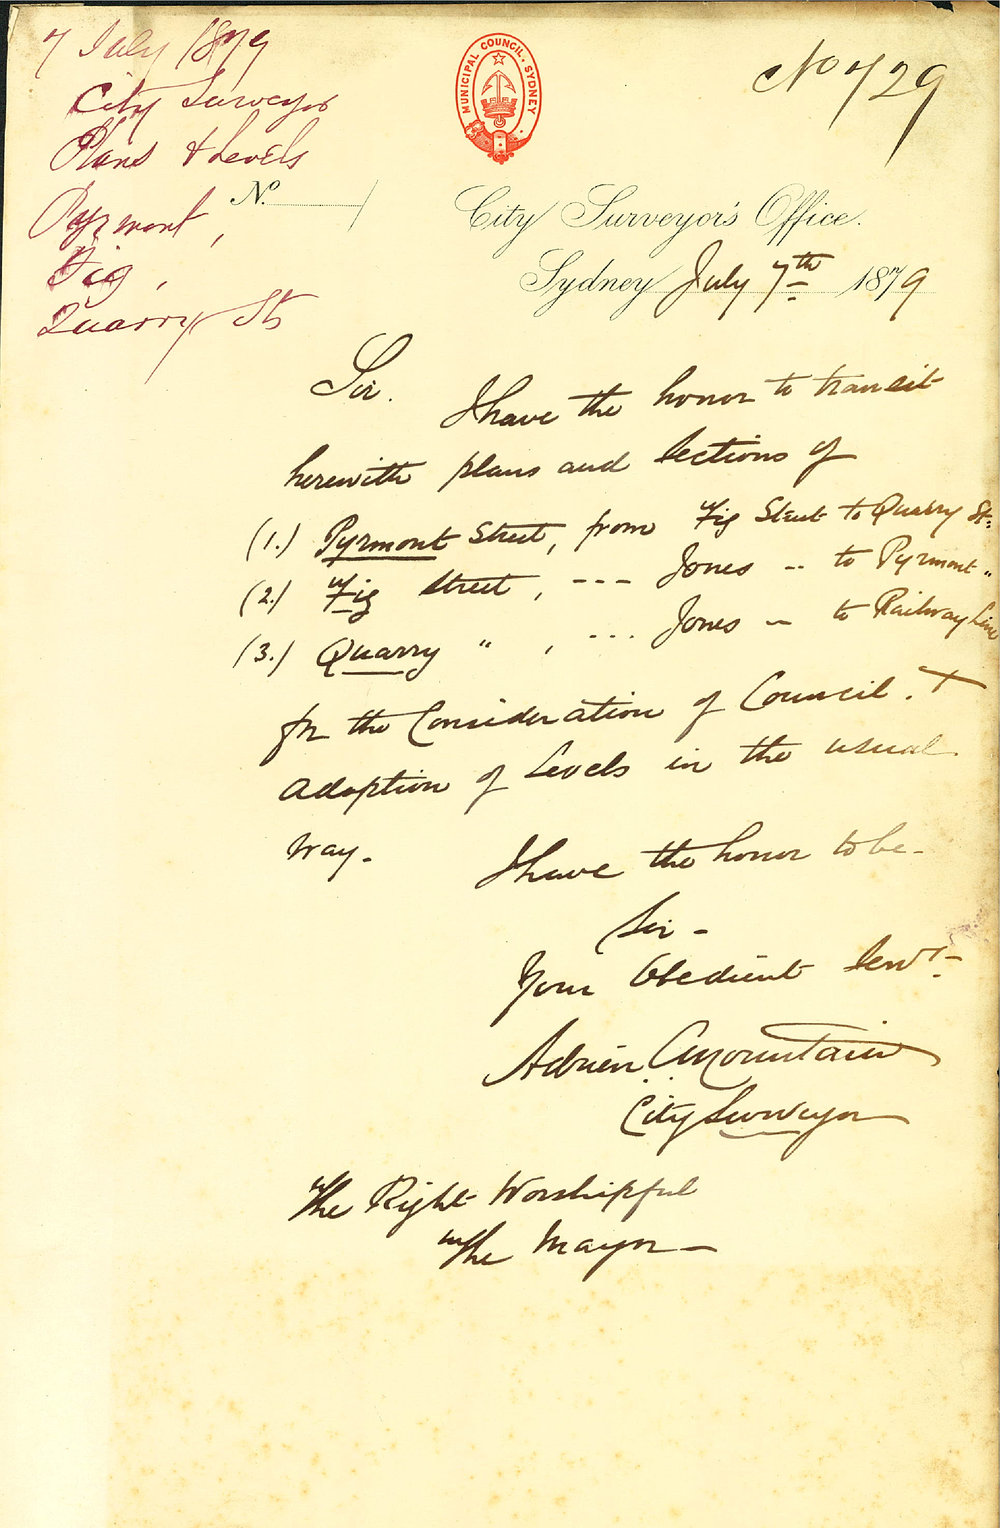 7 July 1879
City Surveyor
Plans & Levels
Pyrmont,
Fig,
Quarry Sts
No 729
MUNICIPAL COUNCIL. SYDNEY
No.
City Surveyor's Office.
Sydney July 7th 1879
Sir.
I have the honor to transit
herewith plans and Sections of
(1.) Pyrmont Street, from Fig Street to Quarry St:
(2.) Fig Street, --- Jones -- to Pyrmont "
(3.) Quarry " , ... Jones -- to Railway Line
for the Consideration of Council. +
adoption of Levels in the usual
way.
I have the honor to be-
Sir -
Your Obedient Servt-
Adrien C Mountain
City Surveyor
The Right Worshipful
The Mayor -